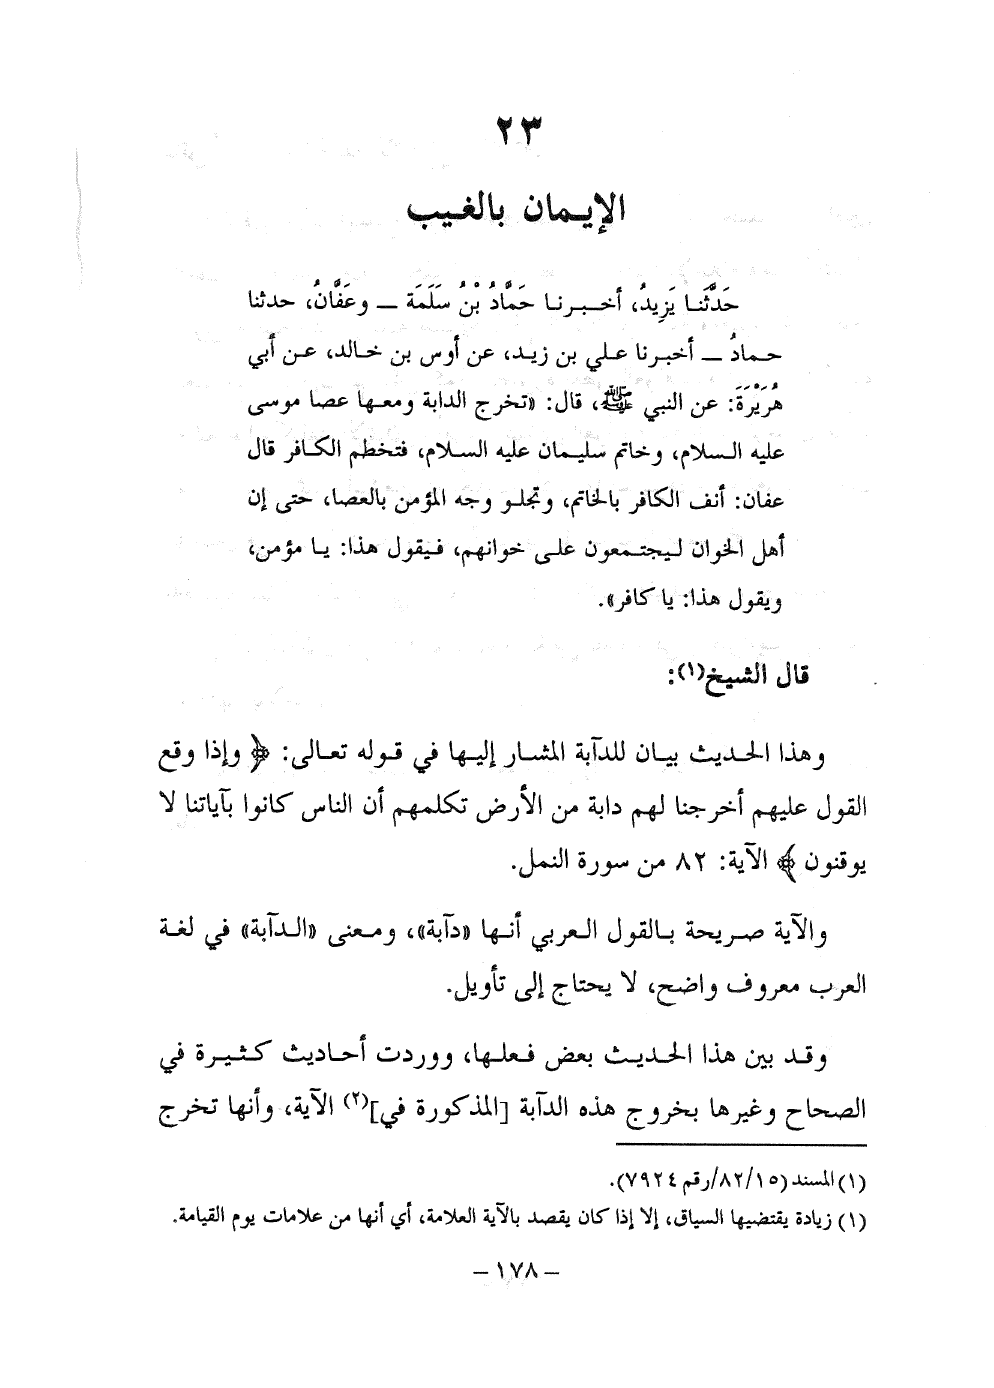 ٢٣
الإيـمان بالغـيب
حَدَّثَنـا يَزِيدُ، أخـبـرنـا حَمَّادُ بْنُ سَلَمَة ــ وعَفَّانُ، حدثنا
حـمادُ ــ أخبـرنا عـلي بن زيـد، عن أوس بن خـالد، عـن أبي
هُرَيْرَةَ: عن النبي ﷺ، قال: «تخرج الدابة ومعـها عصا موسى
عليه الـسلام، وخاتم سليـمان عليه السـلام، فتخطم الكـافر قال
عفان: أنف الكافر بالخاتم، وتجلـو وجه المؤمن بالعصا، حتى إن
أهل الخوان لـيجتـمعون علـى خوانهم، فـيقول هذا: يـا مؤمن،
ويقول هذا: يا كافر».
قال الشيخ(١):
وهذا الحـديث بيان للدآبة المشـار إليـها في قـوله تعـالى: ﴿ وإذا وقع
القول عليهم أخرجنا لهم دابة من الأرض تكلمهم أن الناس كانوا بآياتنا لا
يوقنون ﴾ الآية: ٨٢ من سورة النمل.
والآية صـريحة بـالقول العربي أنـها «دآبة»، ومـعنى «الـدآبة» في لغـة
العرب معروف واضح، لا يحتاج إلى تأويل.
وقـد بين هذا الحـديـث بعض فـعلـها، ووردت أحـاديث كـثـيرة في
الصحاح وغيرها بخروج هذه الدآبة [المذكورة في](٢) الآية، وأنها تخرج
(١) المسند (٨٢/١٥/رقم ٧٩٢٤).
(١) زيادة يقتضيها السياق، إلا إذا كان يقصد بالآية العلامة، أي أنها من علامات يوم القيامة.
– ١٧٨ –